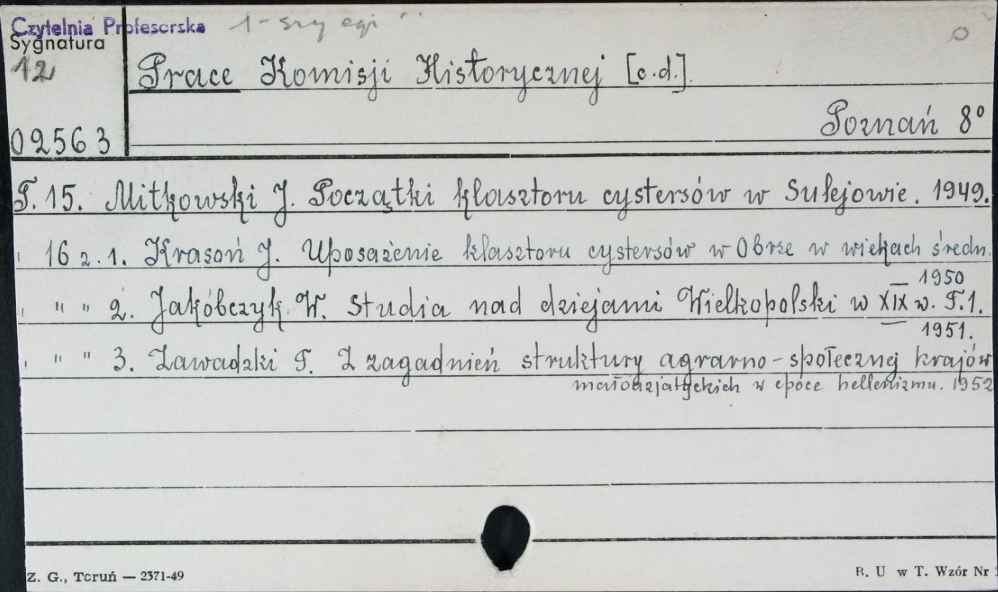 Czytelnia Profesorska 1-szy egz
Sygnatura
12
Prace Komisji Historycznej [c.d.]
Poznań 8°
02563
T. 15. Mitkowski J. Początki klasztoru cystersów w Sulejowie. 1949.
" 16 z. 1. Krasoń J. Uposażenie klasztoru cystersów w Obrze w wiekach średn.
1950
" " " 2. Jakóbczyk W. Studia nad dziejami Wielkopolski w XIX w. T.1.
1951.
" " " 3. Zawadzki T. Z zagadnień struktury agrarno-społecznej krajów
małoazjatyckich w epoce hellenizmu. 1952
Z. G., Toruń — 2371-49
B. U w T. Wzór Nr